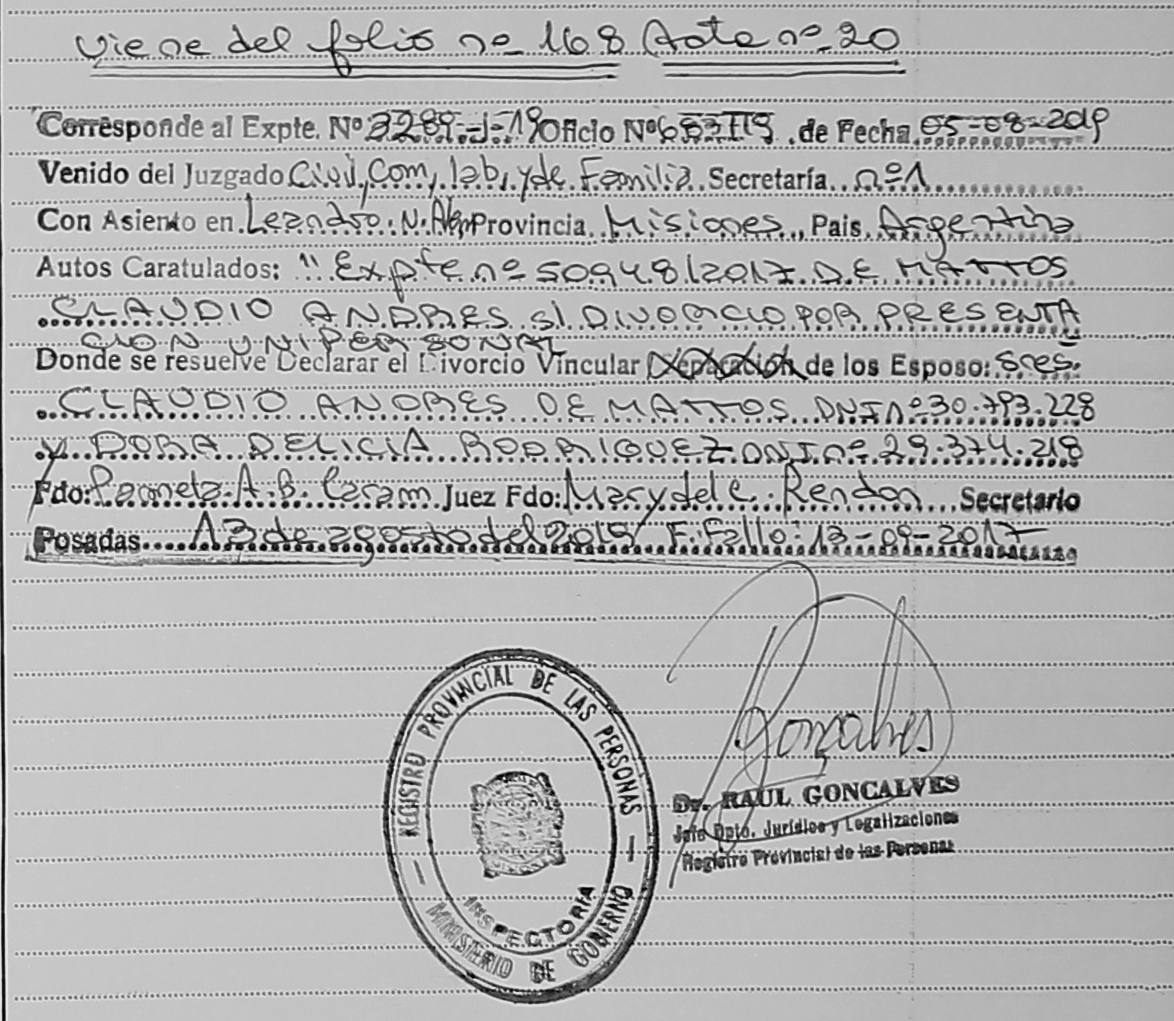 Viene del folio nº 168 Acta nº 20
Corresponde al Expte. Nº 3289-J-19 Oficio Nº 653/19 de Fecha 05-08-2019
Venido del Juzgado Civil, Com, lab, y de Familia Secretaría nº 1
Con Asiento en Leandro N. Alem Provincia Misiones, Pais Argentina
Autos Caratulados: "Expte nº 50948/2017 DE MATTOS
CLAUDIO ANDRES S/ DIVORCIO POR PRESENTA
CION UNIPERSONAL
Donde se resuelve Declarar el Divorcio Vincular Separación de los Esposo: Sres.
CLAUDIO ANDRES DE MATTOS DNI nº 30.793.228
Y DORA DELICIA RODRIGUEZ DNI nº 29.374.218
Fdo: A. B. Caram Juez Fdo: Mary del C. Rendon Secretario
Posadas 13 de agosto del 2019 / F. Fallo: 13-09-2017
REGISTRO PROVINCIAL DE LAS PERSONAS
INSPECTORIA
MINISTERIO DE GOBIERNO
Goncalves
Dr. RAUL GONCALVES
Jefe Dpto. Jurídico y Legalizaciones
Registro Provincial de las Personas